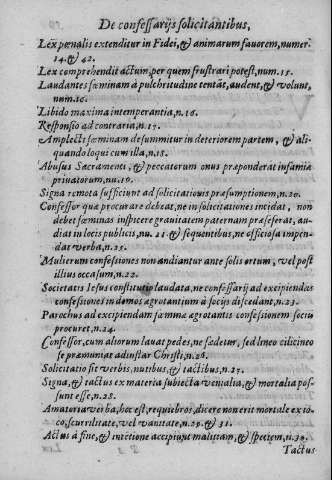 De confessarijs solicitantibus,
Lex pœnalis extenditur in Fidei, & animarum fauorem, numer.
14. & 42.
Lex comprehendit actum, per quem frustrari potest, num. 15.
Laudantes fœminam à pulchritudine tentãt, audent, & volunt,
num. 16.
Libido maxima intemperantia, n. 16.
Responsio ad contraria, n. 17.
Amplecti fœminam desummitur in deteriorem partem, & ali-
quando loqui cum illa, n. 18.
Abusus Sacramenti, & peccatorum onus præponderat infamia
priuatorum, nu. 19.
Signa remota sufficiunt ad solicitationis præsumptionem, n. 20.
Confessor quæ procurare debeat, ne in solicitationes incidat, non
debet fœminas inspicere grauitatem paternam præseferat, au-
diat in locis publicis, nu. 21. & sequentibus, ne officiosa impen-
dat verba, n. 25.
Mulierum confessiones non audiantur ante solis ortum, vel post
illius occasum, n. 22.
Societatis Iesus constitutio laudata, ne confessarij ad excipiendas
confessiones in domos ægrotantium à socijs discedant, n. 23.
Parochus ad excipiendam fœminæ ægrotantis confessionem sociũ
procuret, n. 24.
Confessor, cum aliorum lauat pedes, ne fœdetur, sed lineo cilicineo
se præmuniat ad instar Christi, n. 26.
Solicitatio fit verbis, nutibus, & tactibus, n. 27.
Signa, & tactus ex materia subiecta venialia, & mortalia pos-
sunt esse, n. 28.
Amatoria verba, hoc est, requiebros, dicere non erit mortale ex io-
co, scurrilitate, vel vanitate, n. 29. & 31.
Actus à fine, & intentione accipiunt malitiam, & speciem, n. 30.
Tactus